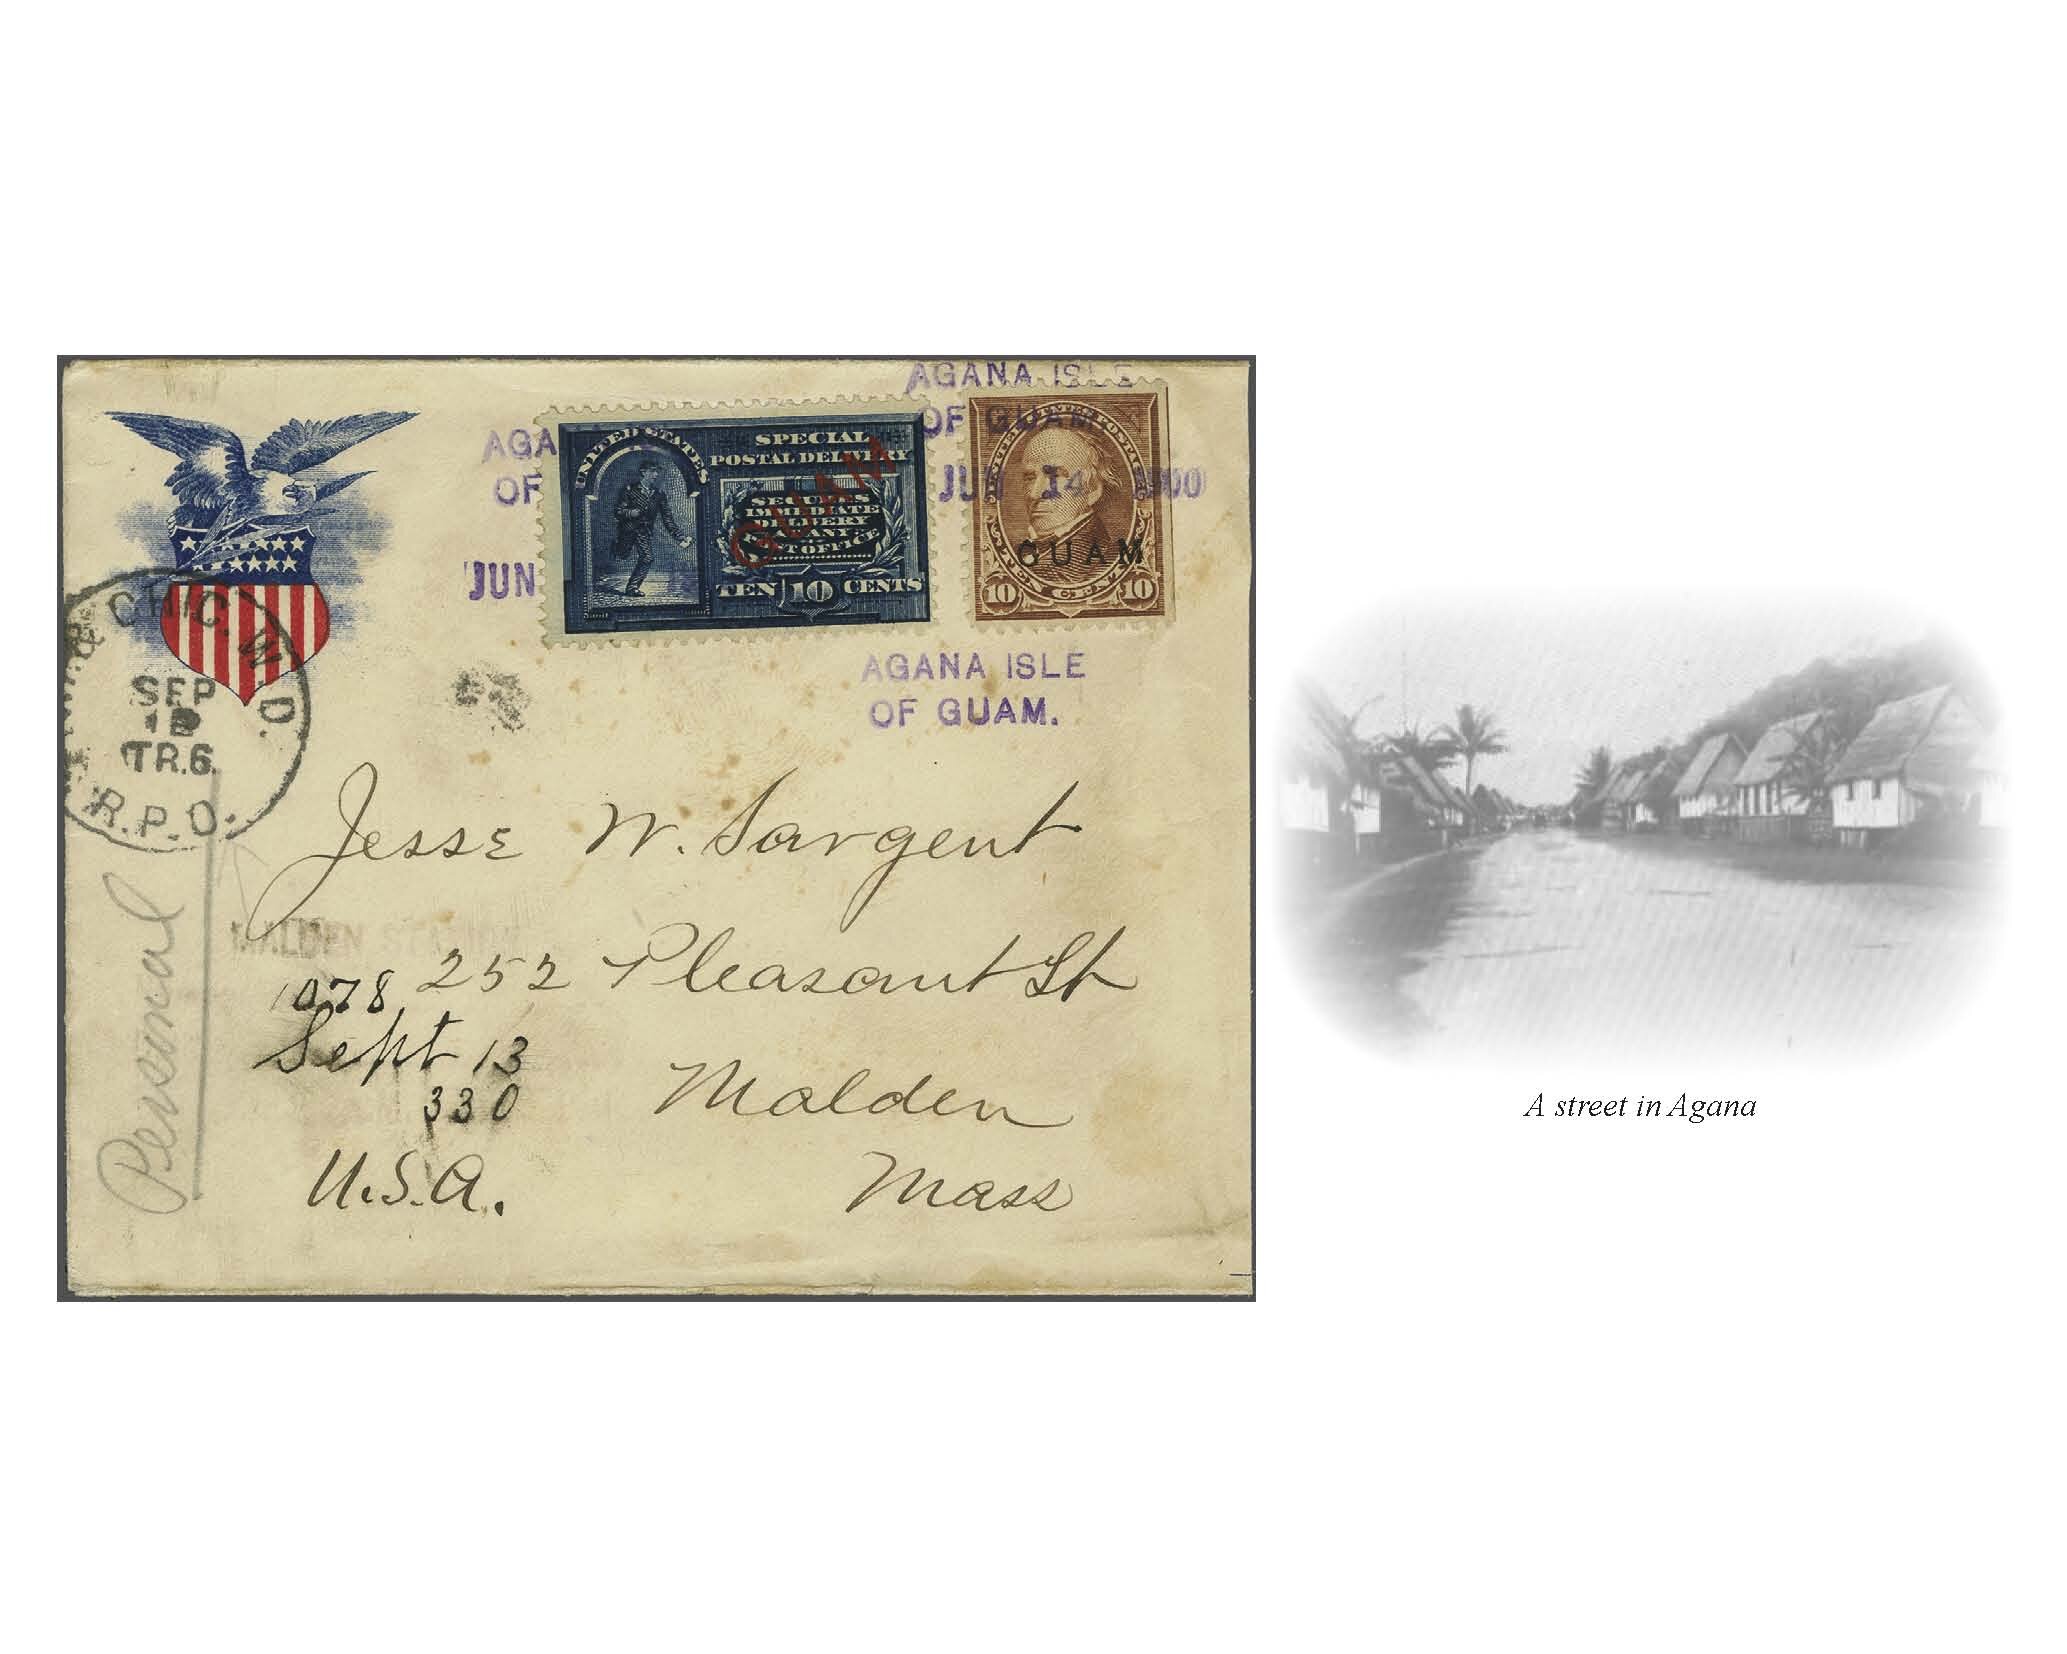 AGANA ISLE
OF GUAM
JUN 14 1900
AGA
OF
JUN
UNITED STATES
SPECIAL
POSTAL DELIVERY
SECURES
IMMEDIATE
DELIVERY
AT ANY
POST OFFICE
TEN 10 CENTS
GUAM
UNITED STATES POSTAGE
GUAM
10 10
AGANA ISLE
OF GUAM.
CHIC. W. D.
SEP
TR.6.
R.P.O.
Personal
Jesse W. Sargent
MALDEN STATION
252 Pleasant St
1078
Sept 13
330
Malden
Mass
U.S.A.
A street in Agana